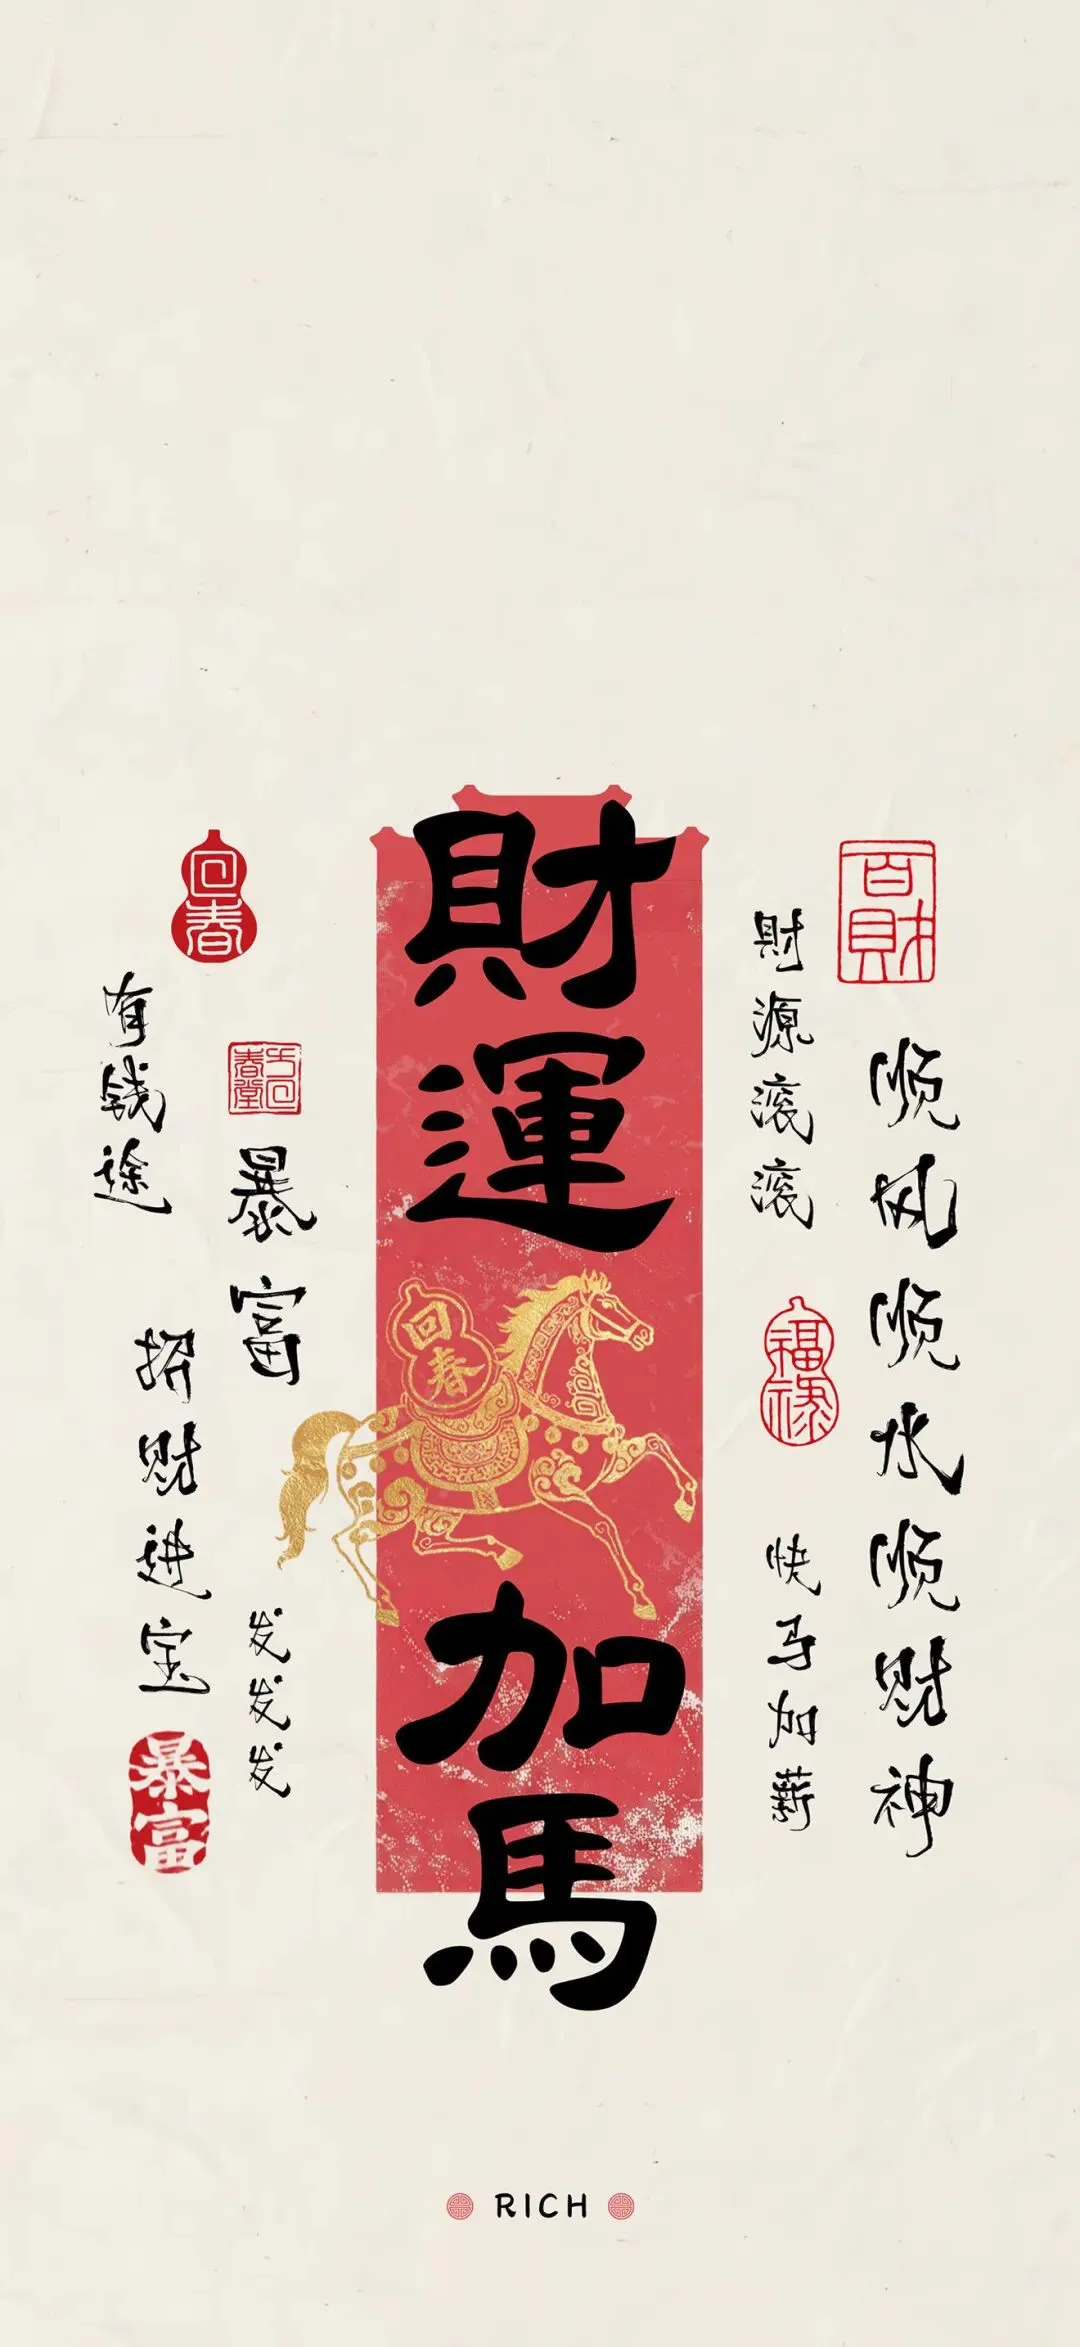 百財
顺风顺水顺财神
財源滚滚
福禄
快马加薪
財運加馬
回春
暴富
发发发
回春
有钱途
招财进宝
暴富
RICH